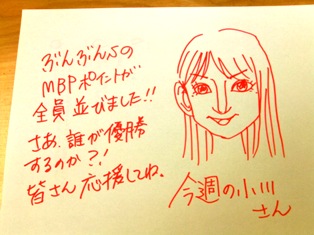 ぶんぶん5の
MBPポイントが
全員並びました!!
さあ、誰が優勝
するのか?!
皆さん応援してね。
今週の小川
さん